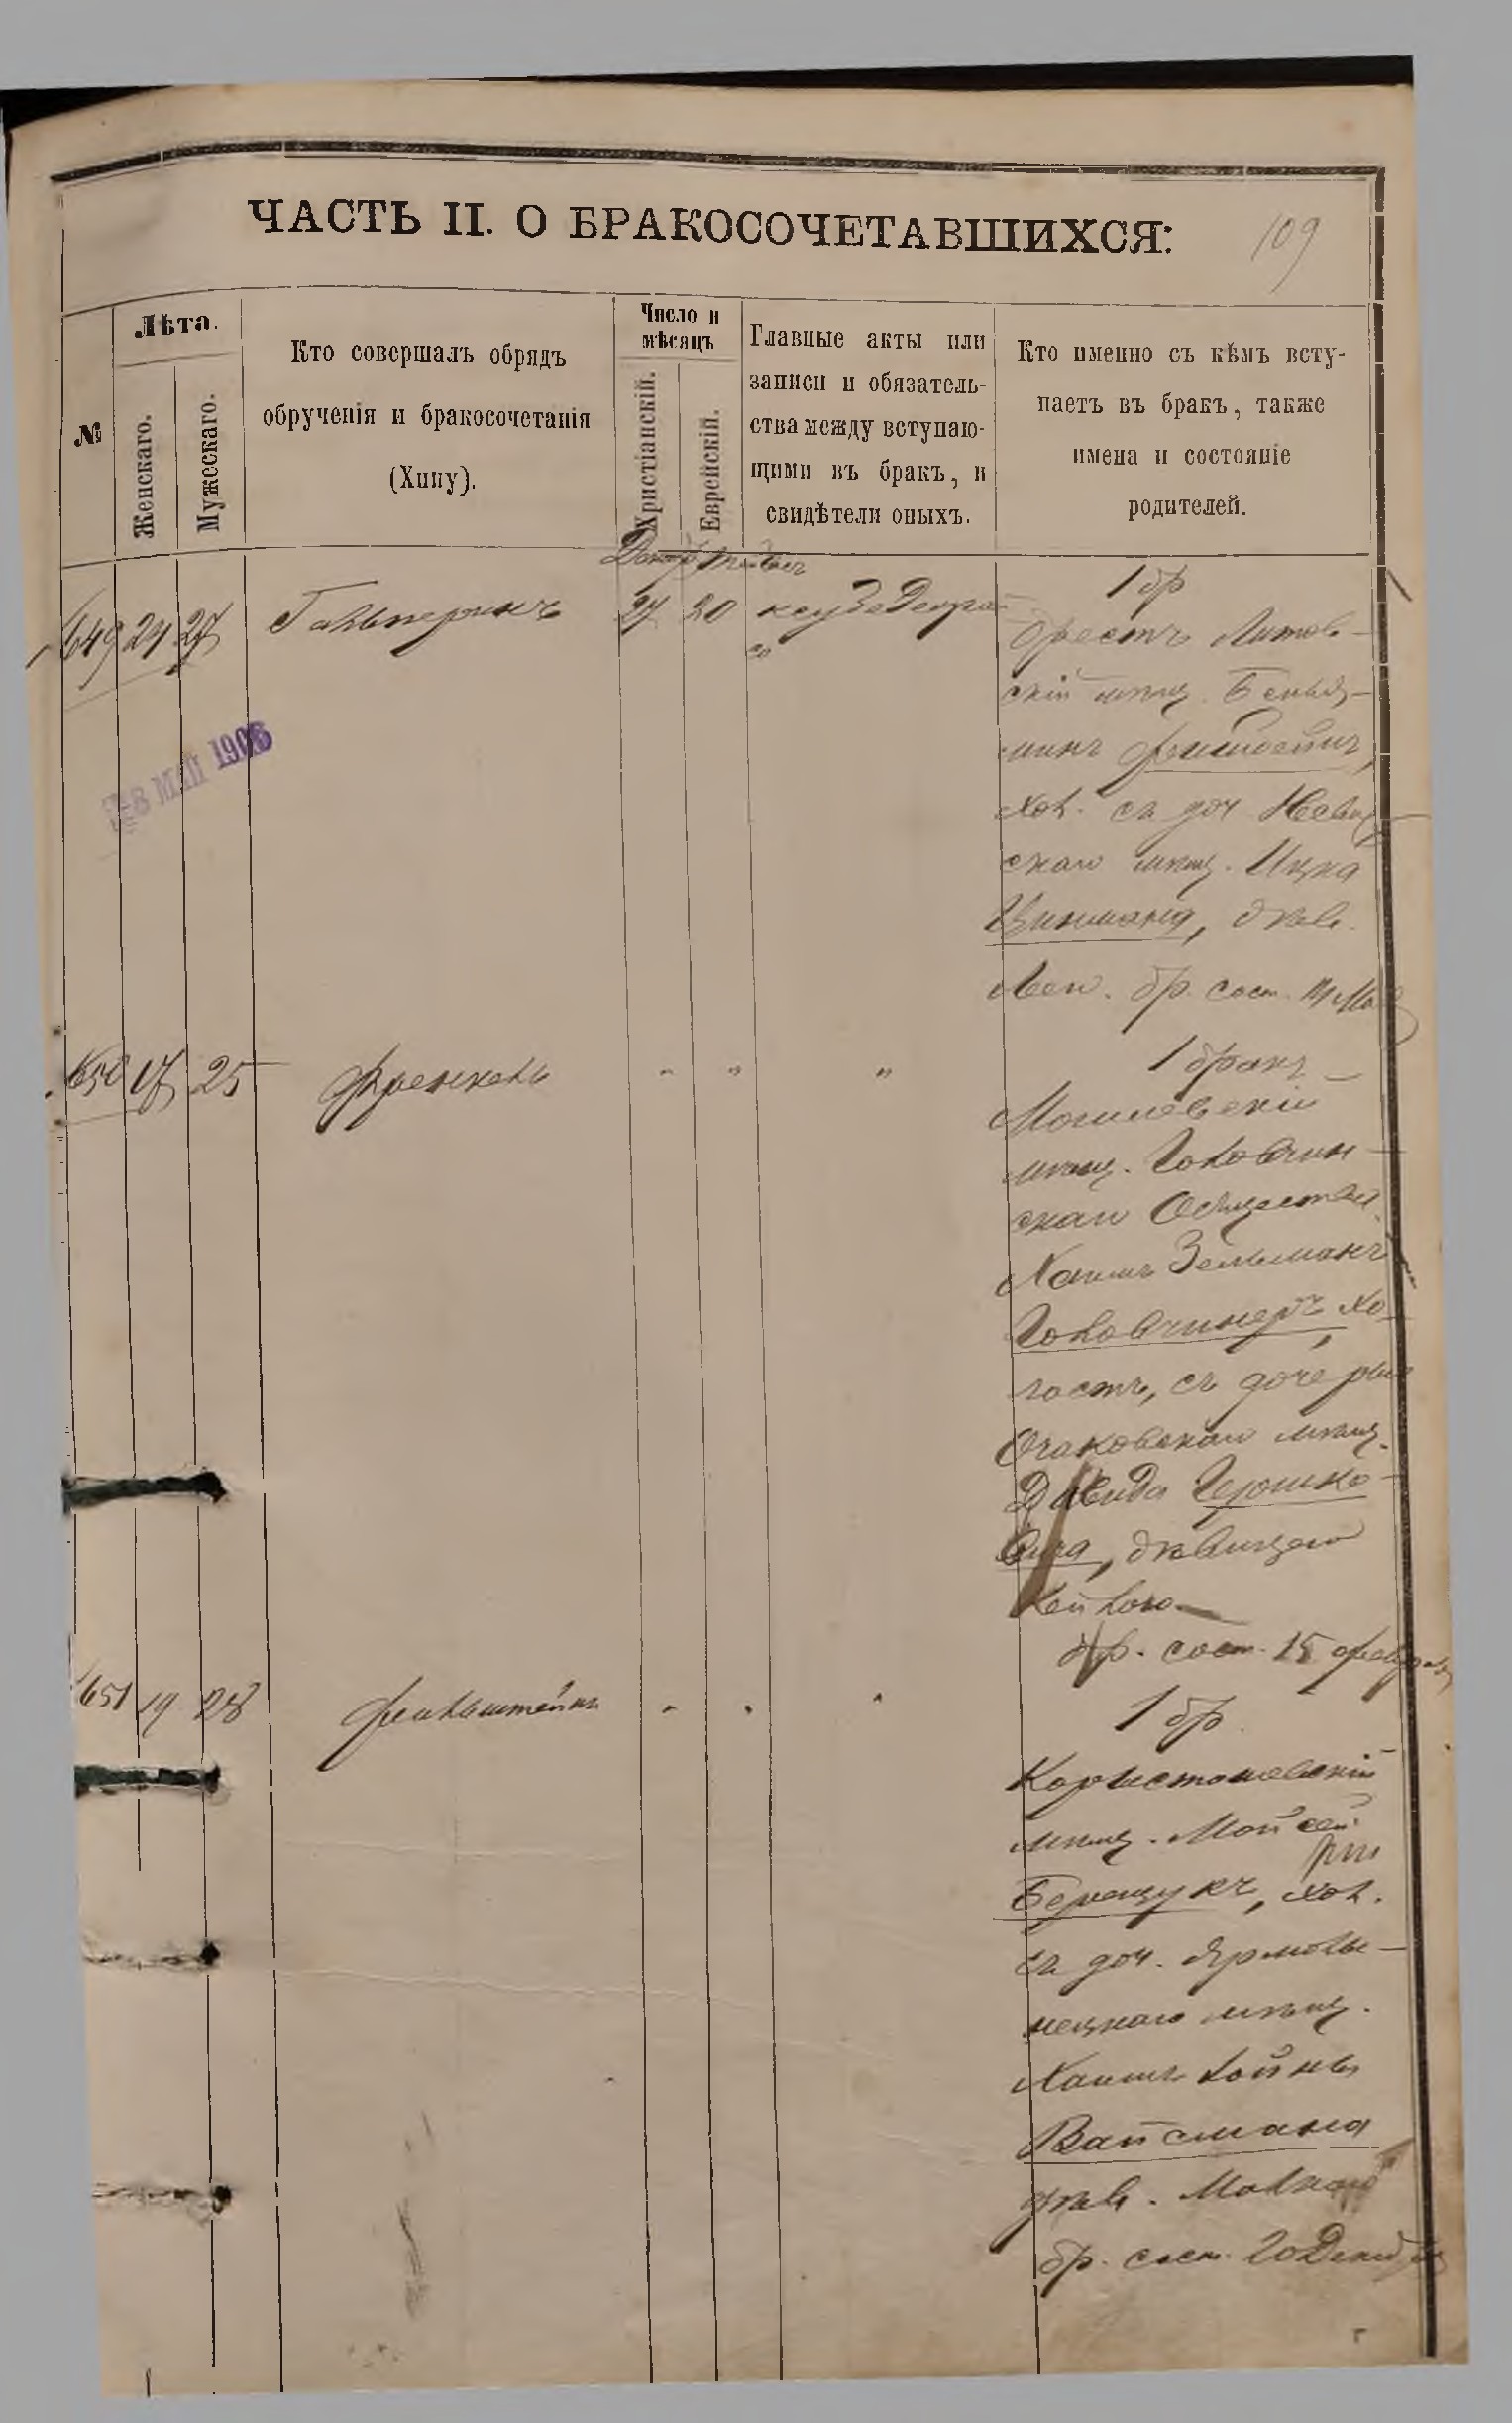 ЧАСТЬ II. О БРАКОСОЧЕТАВШИХСЯ:
109
№
Лѣта.
Женскаго.
Мужескаго.
Кто совершалъ обрядъ
обрученія и бракосочетанія
(Хипу).
Число и
мѣсяцъ
Христіанскій.
Еврейскій.
Главные акты или
записи и обязатель-
ства между вступаю-
щими въ бракъ, и
свидѣтели оныхъ.
Кто именно съ кѣмъ всту-
паетъ въ бракъ, также
имена и состояніе
родителей.
649 24 27 Гальперинъ 27 20
1 бр
Брестъ Литов-
скій мѣщ. Бенья-
минъ
хол. съ доч
скаго мѣщ. Ицка
Цинмана, дѣв.
бр. сост.
8 1906
650 17 25 Френкель " " "
1 бракъ
Могилевскій
мѣщ. Головчин-
скаго Общества
Хаимъ Зельманъ
Головчинеръ, хо-
лостъ, съ дочерью
Очаковскаго мѣщ.
Давида Гершко-
вича, дѣвицею
Бейлою
бр. сост. 15
651 19 28 Финкельштейнъ " " "
1 бр.
мѣщ. Мойсей
Берещукъ, хол.
съ доч. Ярмоли-
нецкаго мѣщ.
Хаимъ Лойвы
Вайсмана
дѣв. Малкою
бр. сост. 20 Декаб